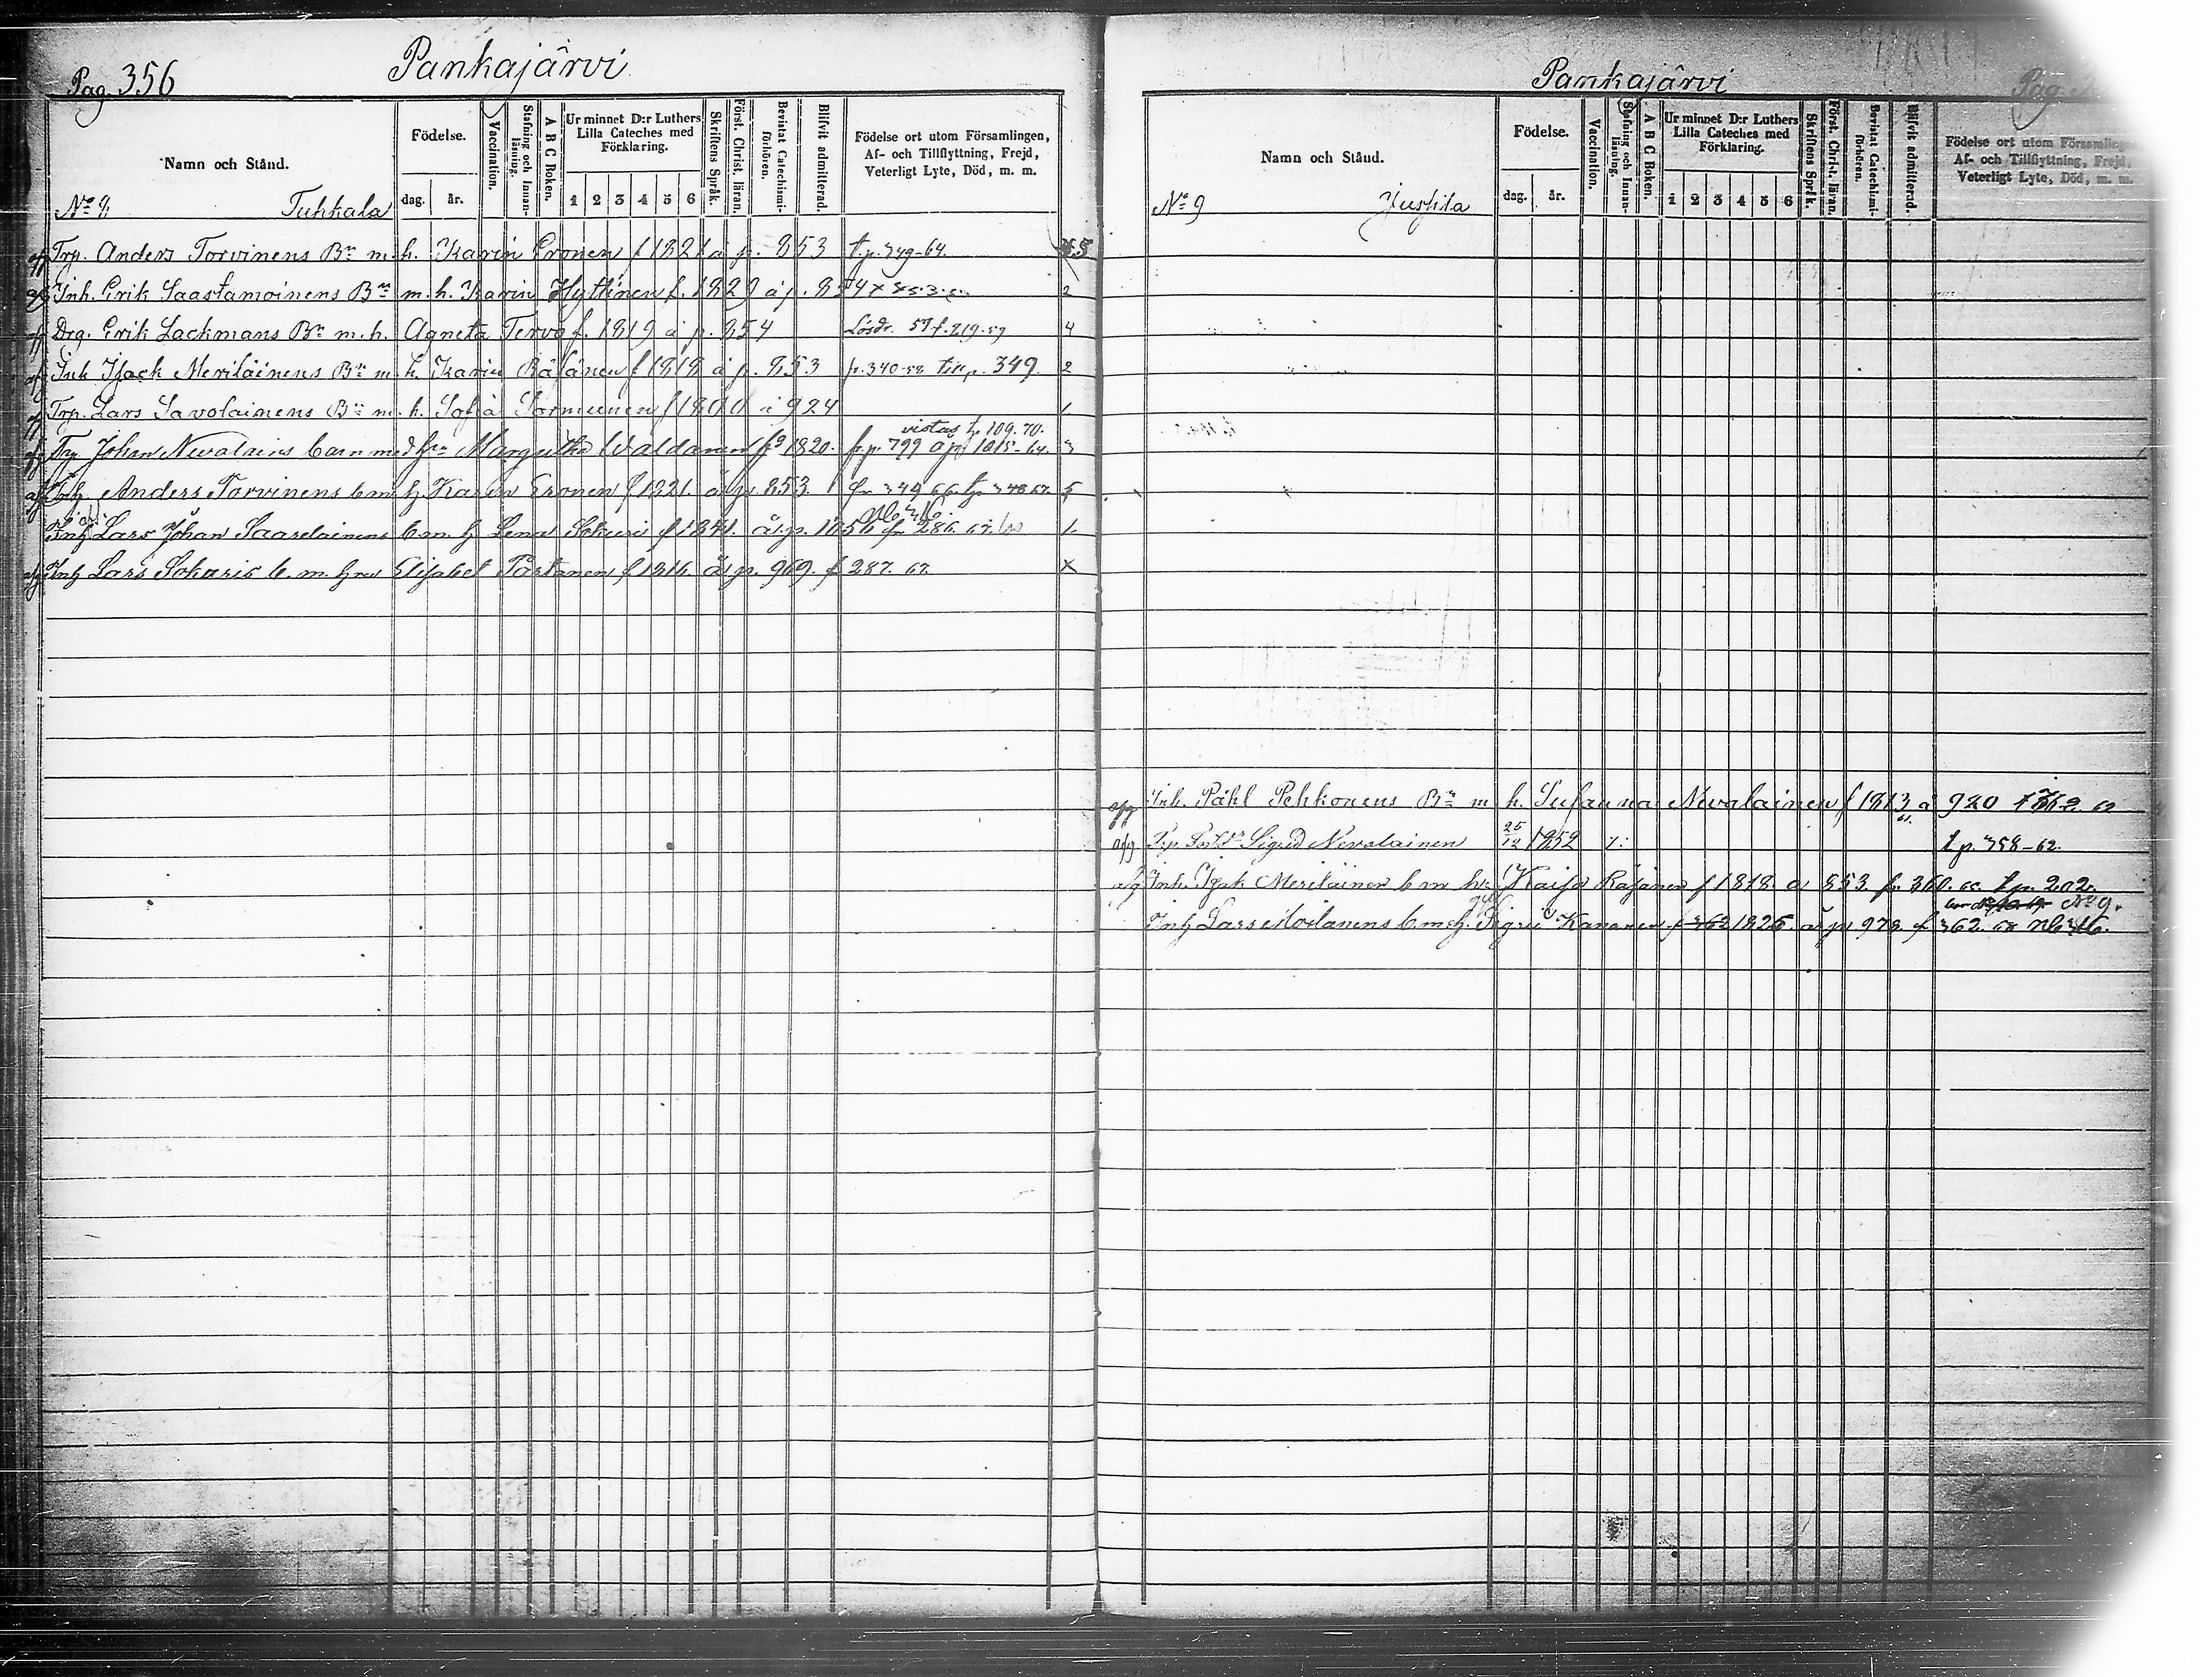 Pag. 356
Pankajärvi
Namn och Stånd.
Födelse.
dag. år.
Vaccination.
Stafning och Innanläsning.
A B C Boken.
Ur minnet D:r Luthers Lilla Cateches med Förklaring.
1 2 3 4 5 6
Skriftens Språk.
Först. Christ. läran.
Bevistat Catechismiförhören.
Blifvit admitterad.
Födelse ort utom Församlingen, Af- och Tillflyttning, Frejd, Veterligt Lyte, Död, m. m.
No 8 Tukkala
Trp. Anders Torvinens Bn m. h. Karin Eronen f 1821 å p. 853 t. p. 349-64. 5
Inh. Erik Saastamoinens Bn m. h. Karin Hyttinen f. 1829 å p. 2
Drg. Erik Lackmans Bn m. h. Agneta Tervo f. 1819 å p. 854 Lösdr. 57 f. 219-57 4
Inh Isack Meriläinens Bn m h. Karin Räsänen f 1818 å p. 853 fr. 340-58 till p. 349. 2
Trp. Lars Savolainens Bn m. h. Sofia Sormunen f 1800 å 924 1
vistas t. 109. 70.
Trp Johan Nevalains barn med hn Margetha Waldanen 1820. fr. p. 799 å p 1015-64. 3
Inh. Anders Torvinens b m h. Karin Eronen f 1821. å p. 853. fr 349 66. tp 348 67. 5
Inh Lars Johan Saarelainens b. m. h Lena Sokuri f 1841. å p. fr 286. 67. 1.
Inh Lars Sokuris b. m. hru Elisabet Partanen f 1816. å p. 969. f 287. 67. x
Pankajärvi
Pag.
Namn och Stånd.
Födelse.
dag. år.
Vaccination.
Stafning och Innanläsning.
A B C Boken.
Ur minnet D:r Luthers Lilla Cateches med Förklaring.
1 2 3 4 5 6
Skriftens Språk.
Först. Christ. läran.
Bevistat Catechismiförhören.
Blifvit admitterad.
Födelse ort utom Församlingen, Af- och Tillflyttning, Frejd, Veterligt Lyte, Död, m. m.
No 9 Jussila
Inh. Påhl Pehkonens Bn m h. Susanna Nevalainen f 1813 å 920
Trp Sigrid Nevalainen 25/12 1852 t p. 358-62.
Inh. Isak Meriläinen b m hn Kaisa Räsänen f 1818. å 853. fr. 360. t p. 202.
No 9.
Inh Lars Moilanens b. m. h. Sigrid Kananen f 1825. å p 978 f 362.